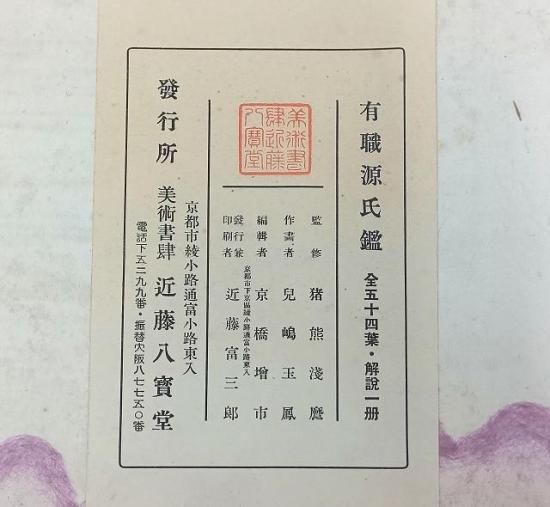 有職源氏鑑 全五十四葉・解說一册
監修 猪熊淺麿
作畫者 兒嶋玉鳳
編輯者 京橋增市
京都市下京區綾小路通富小路東入
發行兼印刷者 近藤富三郎
美術書肆近藤八寶堂
京都市綾小路通富小路東入
發行所 美術書肆 近藤八寶堂
電話下五二九九番・振替大阪八七七五〇番